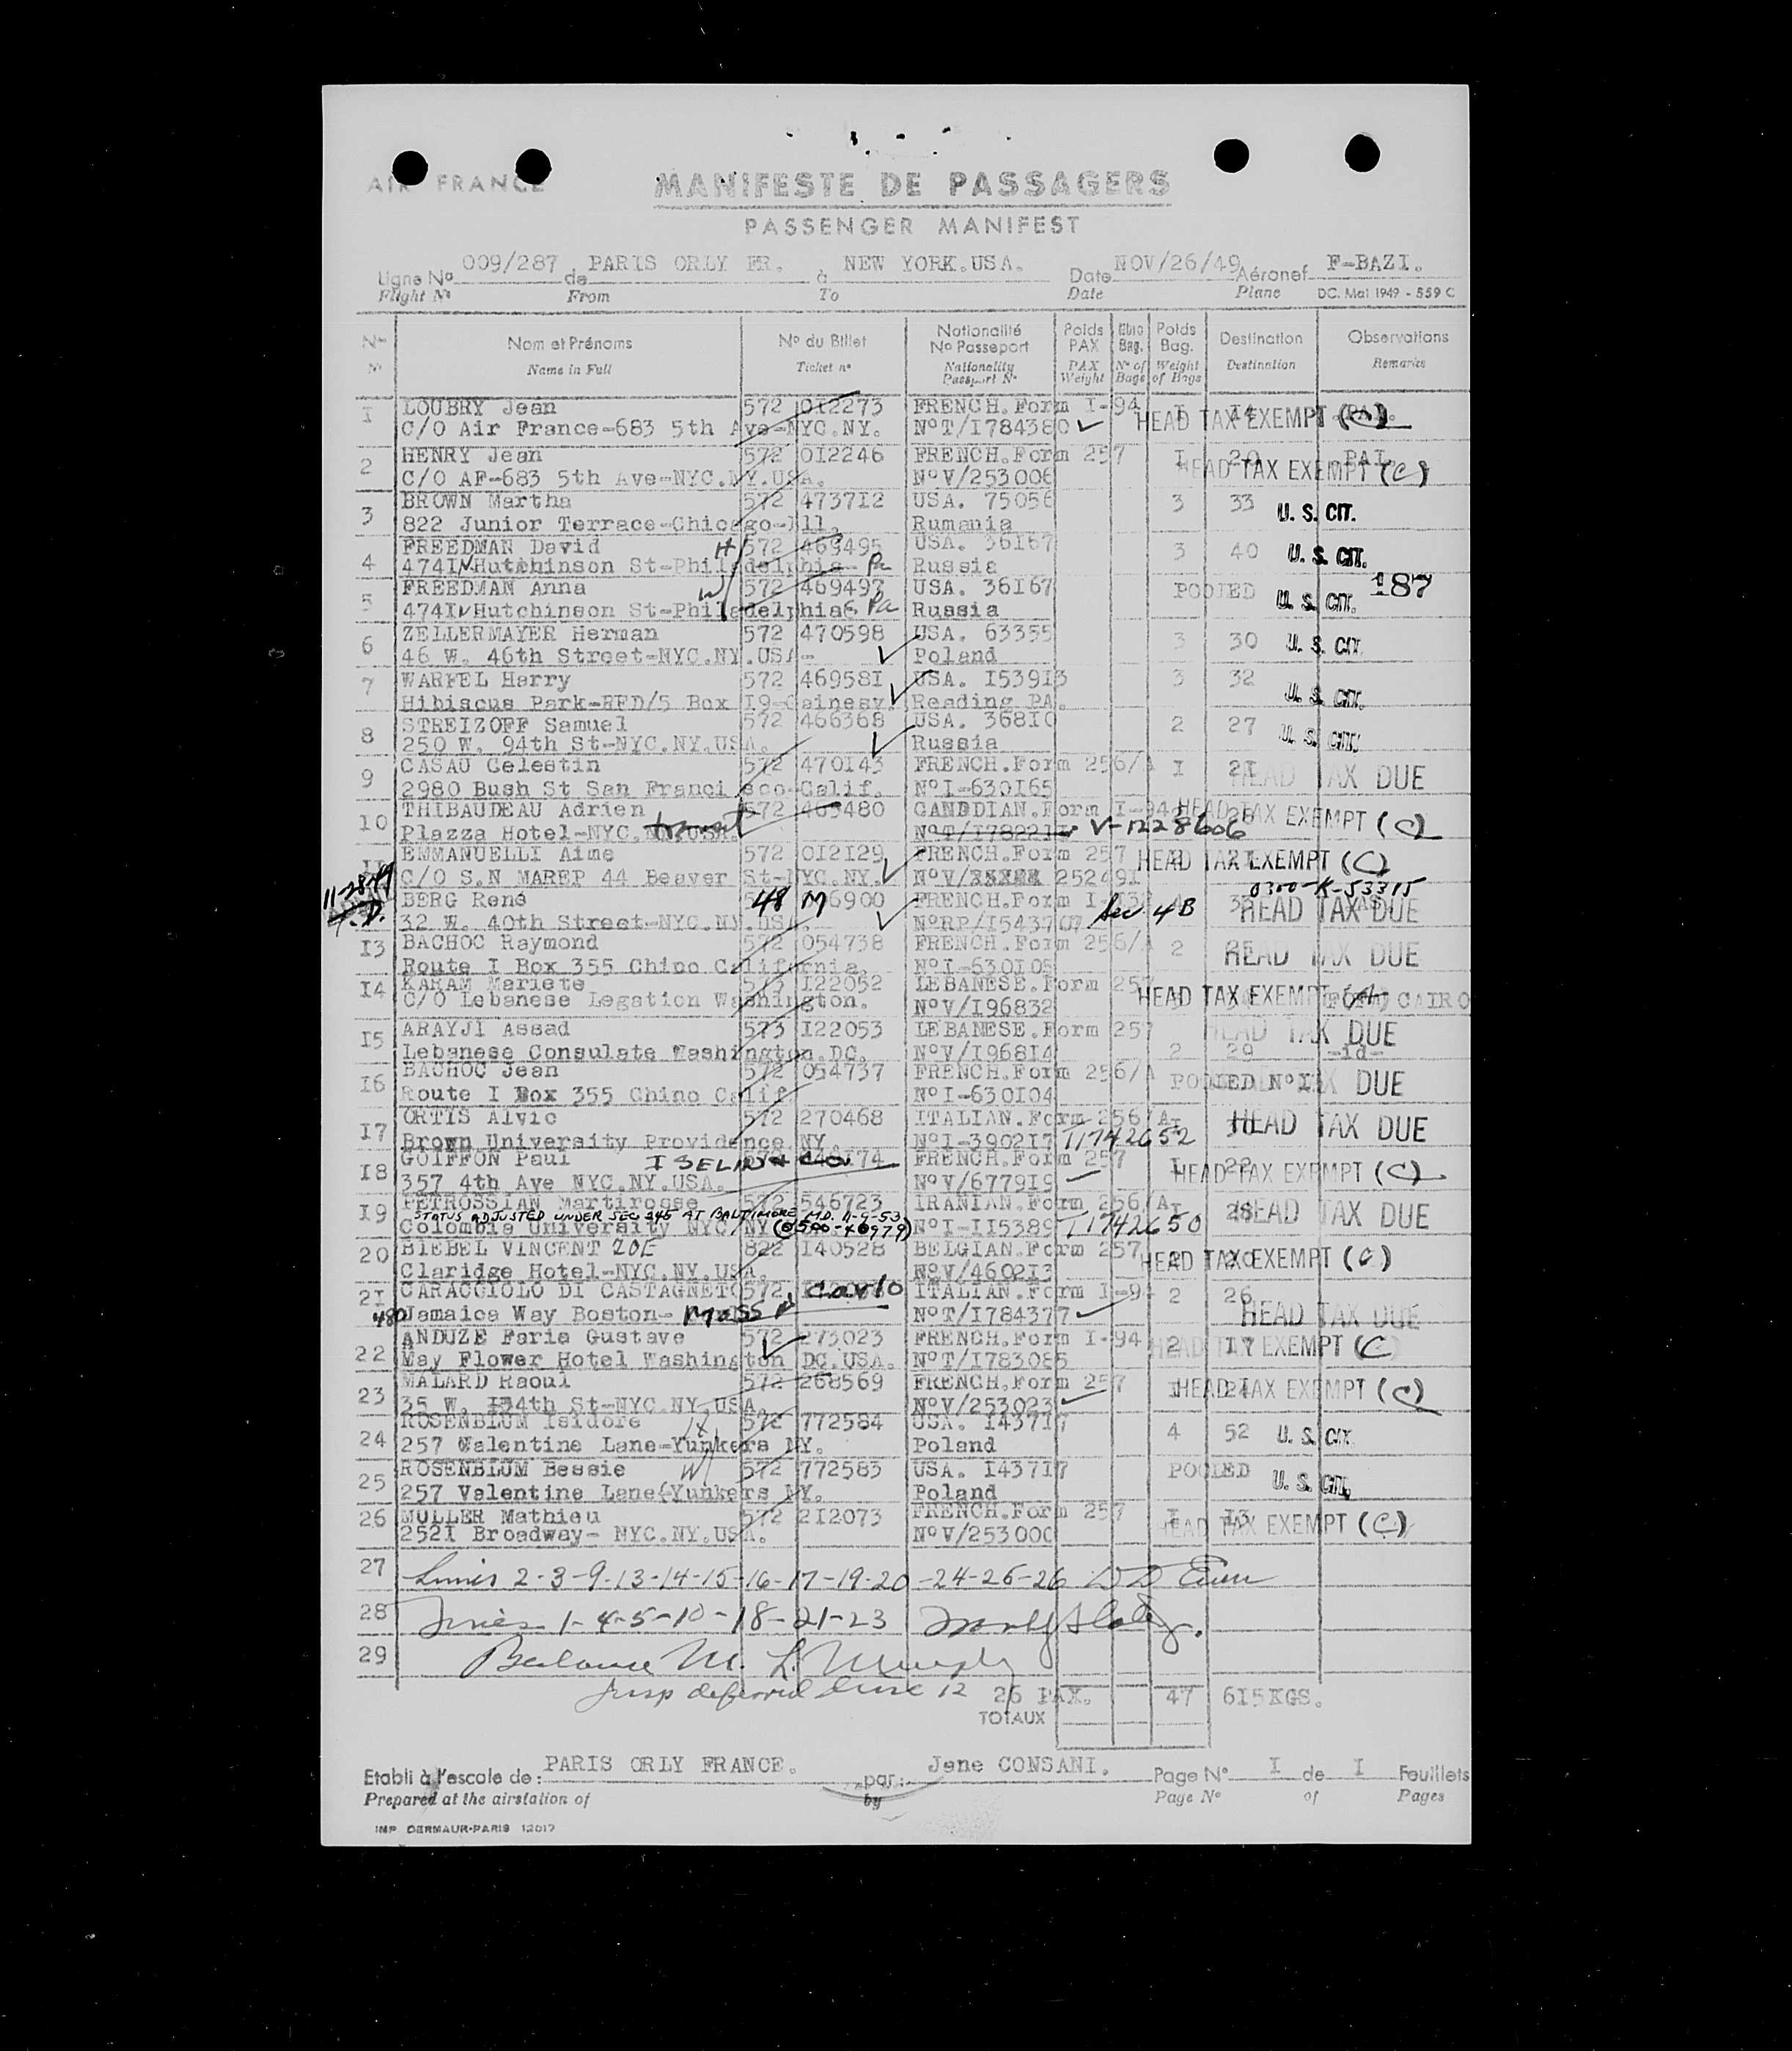 AIR FRANCE
MANIFESTE DE PASSAGERS
PASSENGER MANIFEST
Ligne No 009/287 de PARIS ORLY FR. à NEW YORK.USA. Date NOV/26/49 Aéronef F-BAZI.
Flight No From To Date Plane DC. Mai 1949 - 559 C
No Nom et Prénoms No du Billet Nationalité No Passeport Poids PAX Nbre Bag. Poids Bag. Destination Observations
No Name in Full Ticket no Nationality Passport No PAX Weight No of Bags Weight of Bags Destination Remarks
I LOUBRY Jean 572 012273 FRENCH.Form I-94 I I4 PAI.
C/O Air France-683 5th Ave-NYC.NY. NoT/I784380 HEAD TAX EXEMPT (C)
2 HENRY Jean 572 0I2246 FRENCH.Form 257 I 20 PAI.
C/O AF-683 5th Ave-NYC.NY.USA. NoV/253006 HEAD TAX EXEMPT (C)
3 BROWN Martha 572 4737I2 USA. 75056 3 33 U. S. CIT.
822 Junior Terrace-Chicago-Ill. Rumania
4 FREEDMAN David H 572 469495 USA. 36I67 3 40 U. S. CIT.
474I N Hutchinson St-Philadelphia- Pa Russia
5 FREEDMAN Anna W 572 469497 USA. 36I67 POOIED U. S. CIT. 187
474I N Hutchinson St-Philadelphia Pa Russia
6 ZELLERMAYER Herman 572 470598 USA. 63355 3 30 U. S. CIT.
46 W. 46th Street-NYC.NY.USA- Poland
7 WARFEL Harry 572 46958I USA. I539I3 3 32 U. S. CIT.
Hibiscus Park-RFD/5 Box I9-Gainesv. Reading PA.
8 STREIZOFF Samuel 572 466368 USA. 368I0 2 27 U. S. CIT.
250 W. 94th St-NYC.NY.USA. Russia
9 CASAU Celestin 572 470I43 FRENCH.Form 256/A I 2I HEAD TAX DUE
2980 Bush St San Franci sco-Calif. NoI-630I65
I0 THIBAUDEAU Adrien 572 469480 CANDDIAN.Form I-94 HEAD TAX EXEMPT (C)
Plazza Hotel-NYC.NY.USA. transit V-1228606
II EMMANUELLI Aime 572 0I2I29 FRENCH.Form 257 HEAD TAX EXEMPT (C)
C/O S.N MAREP 44 Beaver St-NYC.NY. NoV/XXXXX 25249I
11-28-49 0300-K-53315
BERG René 48 M 6900 FRENCH.Form Sec 4B HEAD TAX DUE
32 W. 40th Street-NYC.NY.USA. NoRP/I543707
I3 BACHOC Raymond 572 054738 FRENCH.Form 256/A 2 HEAD TAX DUE
Route I Box 355 Chino California. NoI-630I05
I4 KARAM Mariete 573 I22052 LEBANESE.Form 257 HEAD TAX EXEMPT CAIRO
C/O Lebanese Legation Washington. NoV/I96832
I5 ARAYJI Assad 573 I22053 LEBANESE.Form 257 HEAD TAX DUE
Lebanese Consulate Washington.DC. NoV/I968I4 2 29 -id-
I6 BACHOC Jean 572 054737 FRENCH.Form 256/A POOIED NoI3 TAX DUE
Route I Box 355 Chino Calif NoI-630I04
I7 ORTIS Alvio 572 270468 ITALIAN.Form 256/A I 30 HEAD TAX DUE
Brown University Providence NY. NoI-3902I7 T1742652
I8 GOIFFON Paul ISELIN & Co FRENCH.Form 257 I 22 HEAD TAX EXEMPT (C)
357 4th Ave NYC.NY.USA. NoV/6779I9
I9 PETROSSIAN Martirosse 572 546723 IRANIAN.Form 256/A HEAD TAX DUE
STATUS ADJUSTED UNDER SEC 245 AT BALTIMORE MD. 11-9-53
Colombia University NYC/NY (0500-40979) NoI-II5389 T1742650
20 BIEBEL VINCENT ZOE 822 I40528 BELGIAN.Form 257 HEAD TAX EXEMPT (C)
Claridge Hotel-NYC.NY.USA. NoV/4602I3
2I CARACCIOLO DI CASTAGNETO 572 Carlo ITALIAN.Form I-94 2 26 HEAD TAX DUE
480 Jamaica Way Boston- Mass NoT/I784377
22 ANDUZE Faria Gustave 572 273023 FRENCH.Form I-94 2 I7 HEAD TAX EXEMPT (C)
May Flower Hotel Washington DC.USA. NoT/I783085
23 MALARD Raoul 572 268569 FRENCH.Form 257 I 24 HEAD TAX EXEMPT (C)
35 W. I54th St-NYC.NY.USA. NoV/253023
24 ROSENBLUM Isidore H 572 772584 USA. I437I7 4 52 U. S. CIT.
257 Valentine Lane-Yunkers NY. Poland
25 ROSENBLUM Bessie W 572 772583 USA. I437I7 POOIED U. S. CIT.
257 Valentine Lane-Yunkers NY. Poland
26 MULLER Mathieu 572 2I2073 FRENCH.Form 257 I I3 HEAD TAX EXEMPT (C)
252I Broadway- NYC.NY.USA. NoV/253000
27 Lines 2-3-9-13-14-15-16-17-19-20-24-25-26
28 Lines 1-4-5-10-18-21-23
29 Balance M. L. Murphy
Insp deferred line 12 26 PAX. 47 6I5KGS.
TOTAUX
Etabli à l'escale de: PARIS ORLY FRANCE. par: Jene CONSANI. Page No I de I Feuillets
Prepared at the airstation of by Page No of Pages
IMP DERMAUR-PARIS 12017